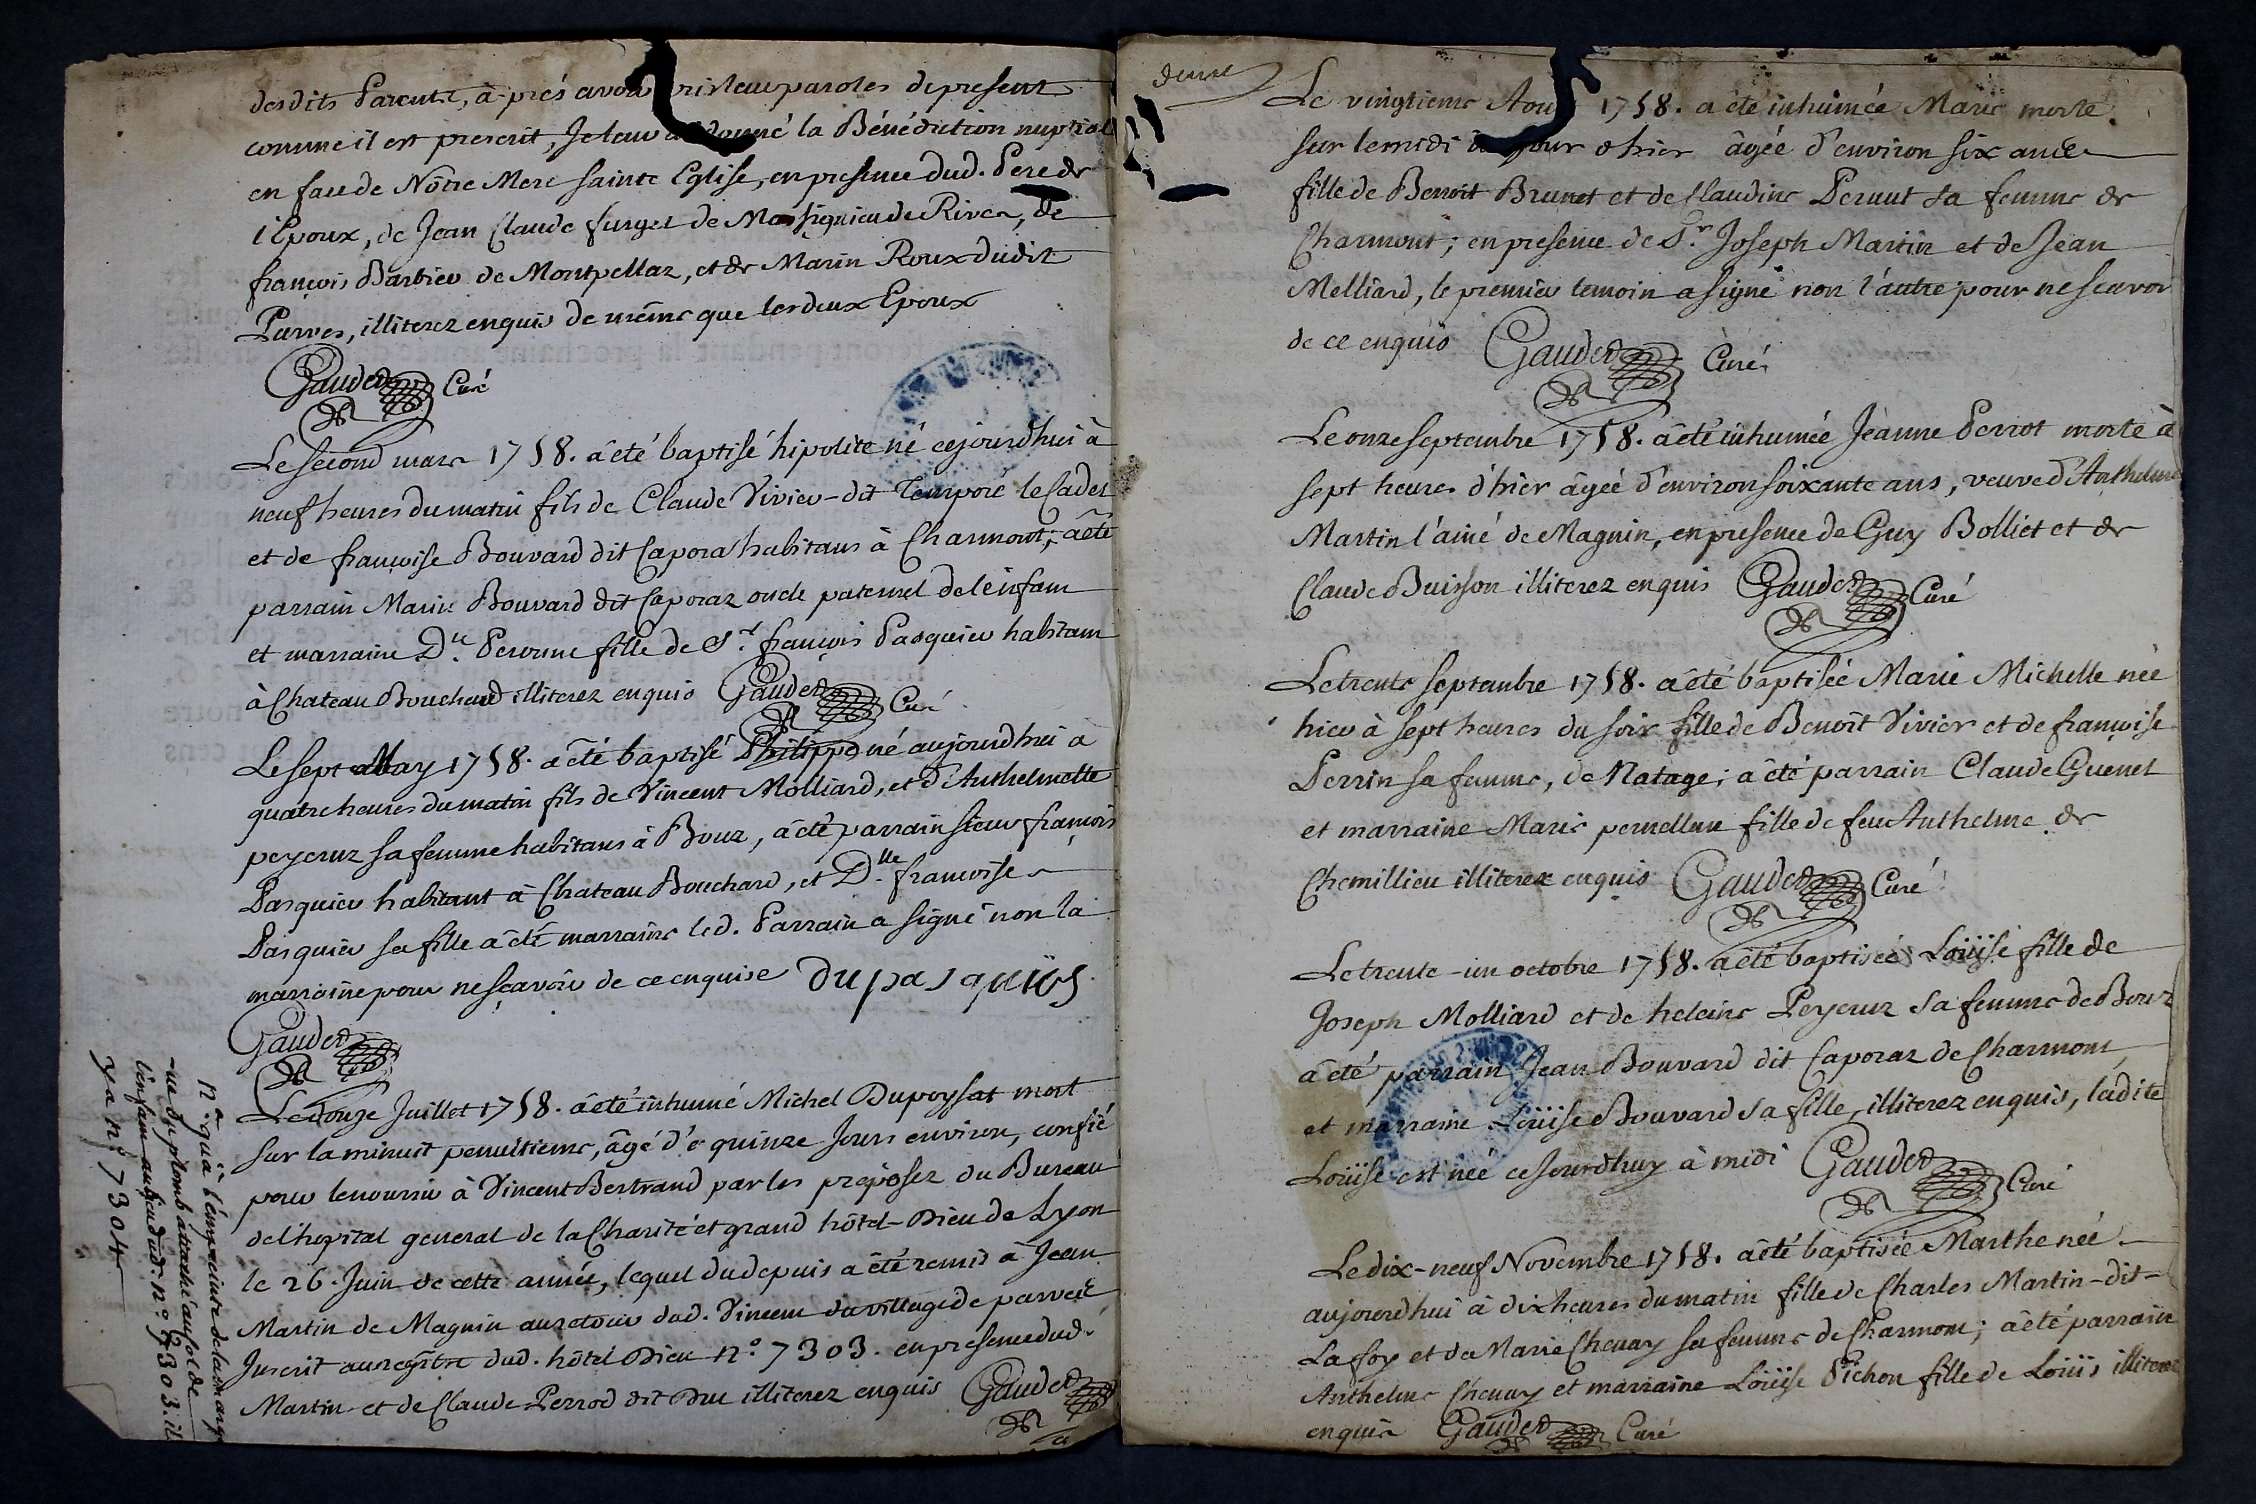 desdits Parents, à-prés avoir pris leur paroles de present
comme il est prescrit, Je leur ai donné la Bénédiction nuptial
en face de Nôtre Mere Sainte Eglise, en presence dud. Pere de
l'Epoux, de Jean Claude furget de Massignieu de Rives, de
françois Barbier de Montpellaz, et de Marin Roux dudit
Parves, illiterez enquis de même que les deux Epoux
Gauder Curé
Le second mars 1758. a été baptisé hipolite né cejourdhui à
neuf heures du matin fils de Claude Vivier-dit Temporé le Cadet
et de françoise Bouvard dit Caporaz habitans à Charmont; a été
parrain Marin Bouvard dit Caporaz oncle paternel de l'enfant
et marraine Dlle. Peronne fille de Sr. françois Pasquier habitant
à Chateau Bouchard illiterez enquis Gauder Curé
Le sept May 1758. a été baptisé Philippe né aujourdhui à
quatre heures du matin fils de Vincent Molliard, et d'Anthelmette
peyeruz sa femme habitans à Bouz, a été parrain sieur françois
Pasquier habitant à Chateau Bouchard, et Dlle. françoise
Pasquier sa fille a été marraine led. Parrain a signé non la
marraine pour ne sçavoir de ce enquise dupasquier
Gauder
Le douze Juillet 1758. a été inhumé Michel Dupoysat mort
sur la minuit penultieme, âgé d'e quinze Jours environ, confié
pour le nourrir à Vincent Bertrand par les préposez du Bureau
de l'hopital general de la Charité et grand hôtel-Dieu de Lyon
le 26. Juin de cette année, lequel du depuis a été remis à Jean
Martin de Magnin au retour dud. Vincent du village de parves
Inscrit au registre dud. hôtel Dieu n.o 7303. en presence dud.
Martin et de Claude Perrod dit Duc illiterez enquis Gauder
na. qu'à l'empreinte de la marque
-ue du plomb attaché au sol de
l'enfant au lieu dud. n.o 7303 il
y a n.o 7304
Le vingtieme Aout 1758. a été inhumée Marie morte
sur le midi du jour d'hier âgée d'environ six ans
fille de Benoit Brunet et de Claudine Peraut sa femme de
Charmont; en presence de Sr. Joseph Martin et de Jean
Melliard, le premier temoin a signé non l'autre pour ne scavoir
de ce enquis Gauder Curé
Le onze septembre 1758. a été inhumée Jeanne Perrot morte à
sept heures d'hier âgée d'environ soixante ans, veuve d'Anthelme
Martin l'ainé de Magnin, en presence de Guy Bolliet et de
Claude Buisson illiterez enquis Gauder Curé
Le trente septembre 1758. a été baptisée Marie Michelle née
hier à sept heures du soir fille de Benoît Vivier et de françoise
Perrin sa femme, de Natage; a été parrain Claude Guenet
et marraine Marie fille de feu Anthelme de
Chemillieu illiterez enquis Gauder Curé
Le trente-un octobre 1758. a été baptisée Loüise fille de
Joseph Molliard et de heleine Peyeruz sa femme de Bouz
a été parrain Jean Bouvard dit Caporaz de Charmont
et marraine Loüise Bouvard sa fille, illiterez enquis, ladite
Loüise est née cejourdhuy à midi Gauder Curé
Le dix-neuf Novembre 1758. a été baptisée Marthe née
aujourdhui à dix heures du matin fille de Charles Martin-dit-
Lafoy et de Marie Chevay sa femme de Charmont; a été parrain
Anthelme Chevay et marraine Loüise Pichon fille de Loüis illiterez
enquis Gauder Curé